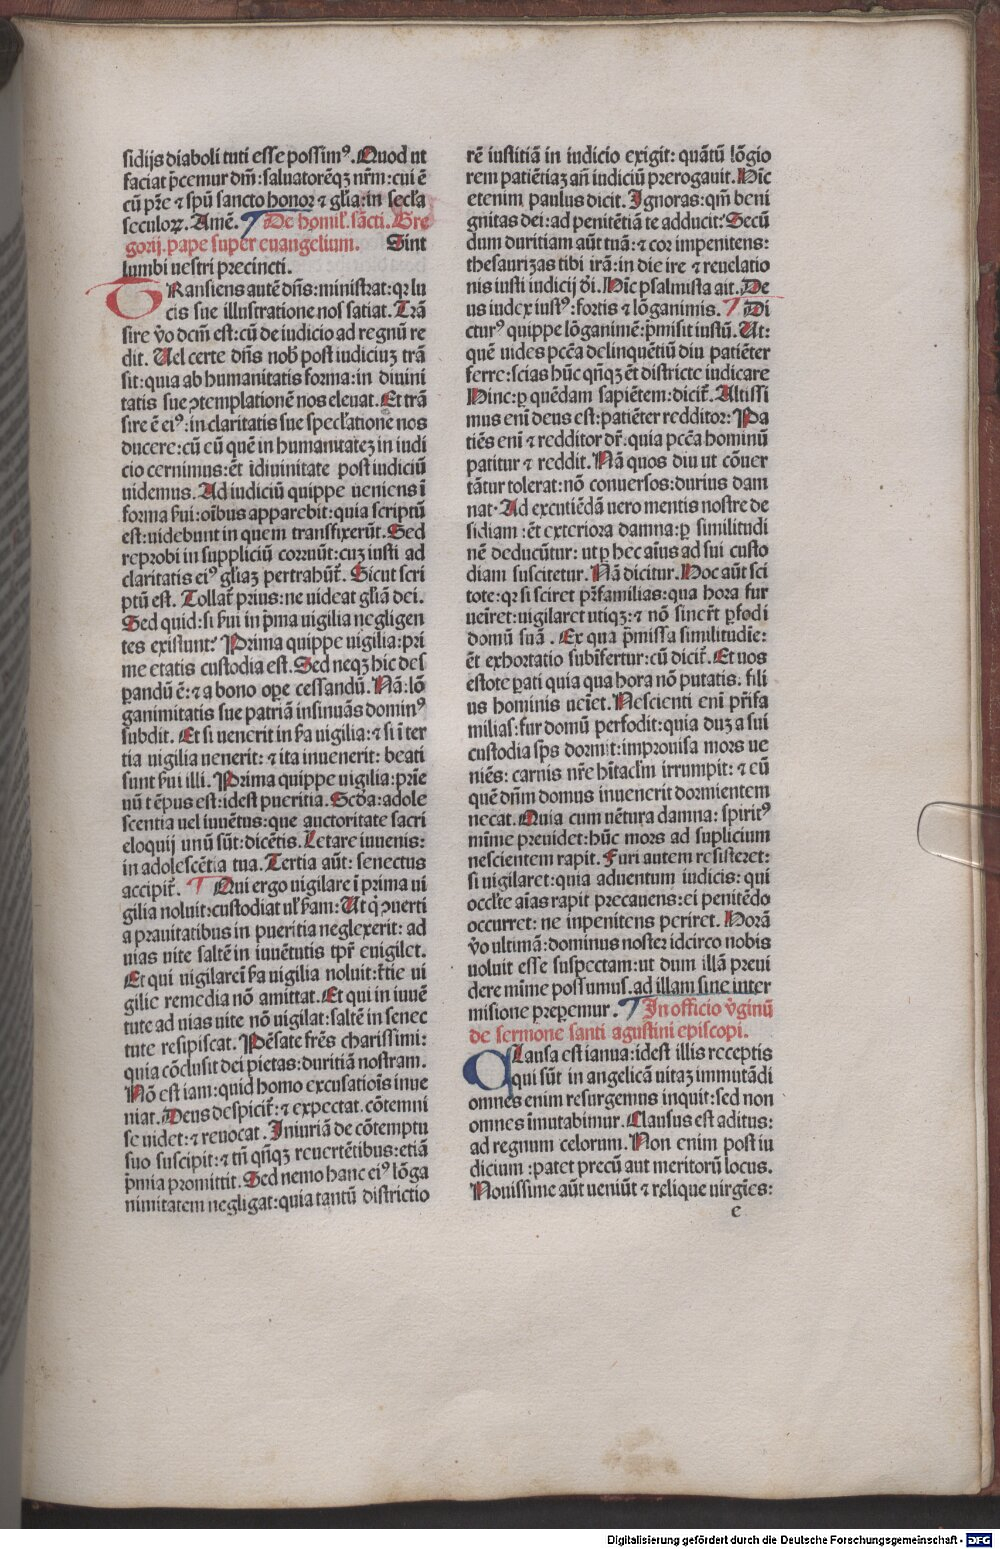 sidijs diaboli tuti esse possimꝰ. Quod ut
faciat p̄cemur dn̄m: saluatorēqꝫ nr̄m: cui ē
cū pr̄e ⁊ spū sancto honor ⁊ gl̄ia: in secl̄a
seculoꝝ. Amē. De homil̄. sācti. Gre
gorij. pape super euangelium. Sint
lumbi uestri precincti.
TRansiens autē dn̄s: ministrat: qꝛ lu
cis sue illustratione nos satiat. Trā
sire v̄o dcm̄ est: cū de iudicio ad regnū re
dit. Uel certe dn̄s nob̄ post iudiciuꝫ trā
sit: quia ab humanitatis forma: in diuini
tatis sue ꝯtemplationē nos eleuat. Et trā
sire ē eiꝰ: in claritatis sue specl̄atione nos
ducere: cū eū quē in humanitateꝫ in iudi
cio cernimus: ēt ī diuinitate post iudiciū
uidemus. Ad iudiciū quippe ueniens ī
forma ẜui: oībus apparebit: quia scriptū
est: uidebunt in quem transfixerūt. Sed
reprobi in suppliciū corruūt: cuꝫ iusti ad
claritatis eiꝰ gl̄iaꝫ pertrahūt̄. Sicut scri
ptū est. Tollat̄ prius: ne uideat gl̄iā dei.
Sed quid: si ẜui in p̄ma uigilia negligen
tes existunt? Prima quippe uigilia: pri
me etatis custodia est. Sed neqꝫ hic des
ꝑandū ē: ⁊ a bono oꝑe cessandū. Nā: lō
ganimitatis sue patriā insinuās dominꝰ
subdit. Et si uenerit in ẜa uigilia: ⁊ si ī ter
tia uigilia uenerit: ⁊ ita inuenerit: beati
sunt ẜui illi. Prima quippe uigilia: prīe
uū tēpus est: idest pueritia. Scd̄a: adole
scentia uel iuuētus: que auctoritate sacri
eloquij unū sūt: dicētis. Letare iuuenis:
in adolescētia tua. Tertia aūt: senectus
accipit̄. Qui ergo uigilare ī prima ui
gilia noluit: custodiat ul̄ ẜam: Ut q̇ ꝯuerti
a prauitatibus in pueritia neglexerit: ad
uias uite saltē in iuuētutis tpr̄ euigilet.
Et qui uigilare ī ẜa uigilia noluit: t̄tie ui
gilie remedia nō amittat. Et qui in iuuē
tute ad uias uite nō uigilat: saltē in senec
tute resipiscat. Pēsate fr̄es charissimi:
quia cōclusit dei pietas: duritiā nostram.
Nō est iam: quid homo excusatiois inue
niat. Deus despicit̄: ⁊ expectat. cōtemni
se uidet: ⁊ reuocat. Iniuriā de cōtemptu
suo suscipit: ⁊ tn̄ qn̄qꝫ reuertētibus: etiā
p̄mia promittit. Sed nemo hanc eiꝰ lōga
nimitatem negligat: quia tantū districtio
rē iustitiā in iudicio exigit: quātū lōgio
rem patiētiaꝫ an̄ iudiciū prerogauit. Hīc
etenim paulus dicit. Ignoras: qm̄ beni
gnitas dei: ad penitētiā te adducit? Secū
dum duritiam aūt tuā: ⁊ cor impenitens:
thesaurizas tibi irā: in die ire ⁊ reuelatio
nis iusti iudicij dī. Hīc psalmista ait. De
us iudex iustꝰ: fortis ⁊ lōganimis. Di
cturꝰ quippe lōganimē: p̄misit iustū. Ut:
quē uides pccā delinquētiū diu patiēter
ferre: scias hūc qn̄qꝫ ēt districte iudicare
Hinc: ꝑ quēdam sapiētem: dicit̄. Altissi
mus enī deus est: patiēter redditor: Pa
tiēs enī ⁊ redditor dr̄. quia pccā hominū
patitur ⁊ reddit. Nā quos diu ut cōuer
tātur tolerat: nō conuersos: durius dam
nat. Ad excutiēdā uero mentis nostre de
sidiam: ēt exteriora damna: ꝑ similitudi
nē deducūtur: ut ꝑ hec aīus ad sui custo
diam suscitetur. Nā dicitur. Hoc aūt sci
tote: qꝛ si sciret pr̄familias: qua hora fur
ueīret: uigilaret utiqꝫ: ⁊ nō sineret ꝑfodi
domū suā. Ex qua p̄missa similitudīe:
ēt exhortatio subīfertur: cū dicit̄. Et uos
estote ꝑati quia qua hora nō putatis: fili
us hominis ueīet. Nescienti enī pr̄ifa
milias: fur domū perfodit: quia duꝫ a sui
custodia sp̄s dormit: improuisa mors ue
niēs: carnis nr̄e hītacl̄m irrumpit: ⁊ eū
quē dn̄m domus inuenerit dormientem
necat. Quia cum uētura damna: spiritꝰ
mīme preuidet: hūc mors ad suplicium
nescientem rapit. Furi autem resisteret:
si uigilaret: quia aduentum iudicis: qui
occl̄te aīas rapit precauens: ei penitēdo
occurret: ne inpenitens periret. Horā
v̄o ultimā: dominus noster idcirco nobis
uoluit esse suspectam: ut dum illā preui
dere mīme possumus. ad illam sine inter
misione preꝑemur. In officio v̄ginū
de sermone santi agustini episcopi.
CLausa est ianua: idest illis receptis
qui sūt in angelicā uitaꝫ immutādi
omnes enim resurgemus inquit: sed non
omnes īmutabimur. Clausus est aditus:
ad regnum celorum. Non enim post iu
dicium: patet precū aut meritorū locus.
Nouissime aūt ueniūt ⁊ relique uirgīes:
e
Digitalisierung gefördert durch die Deutsche Forschungsgemeinschaft - DFG